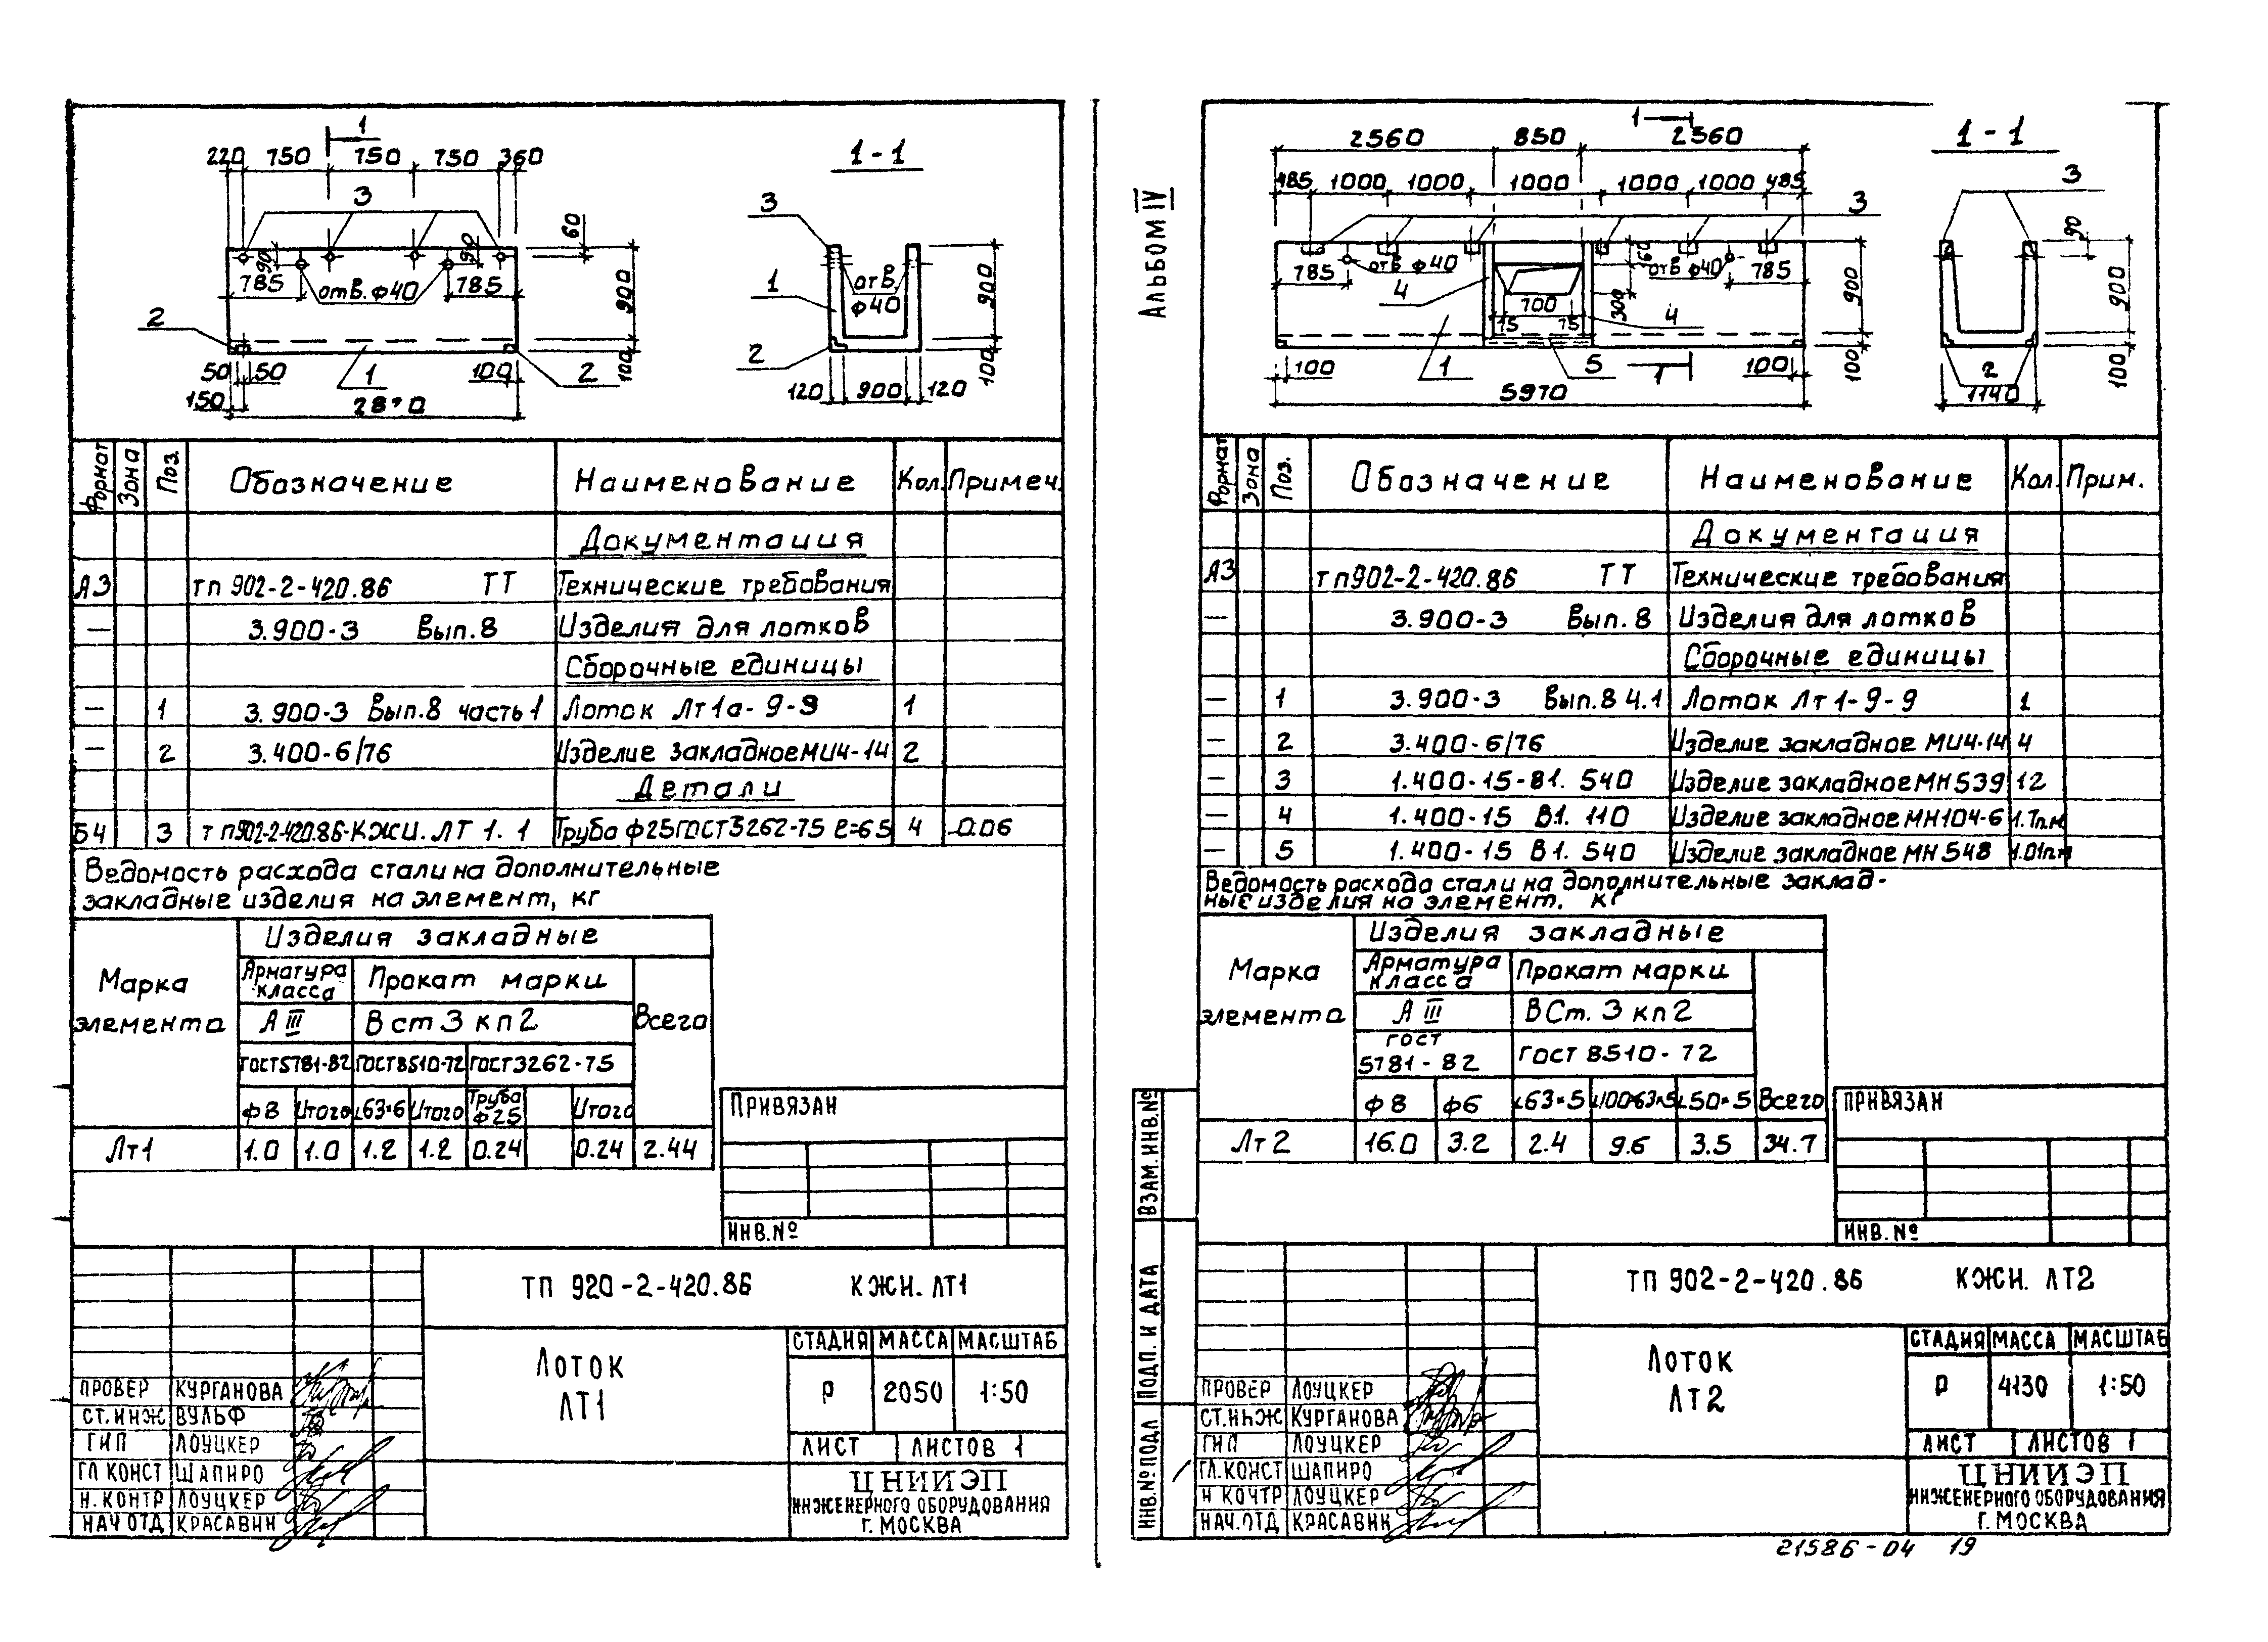 1
220 750 750 750 360
3
60
90
90
785 отв. ф40 785
900
2
100
50 50 1 100 2
150
1-1
3
1
отв
ф40
900
2
100
120 900 120
Формат Зона Поз. Обозначение Наименование Кол. Примеч.
Документация
А3 тп 902-2-420.86 ТТ Технические требования
— 3.900-3 Вып.8 Изделия для лотков
Сборочные единицы
— 1 3.900-3 Вып.8 часть 1 Лоток Лт1а-9-9 1
— 2 3.400-6/76 Изделие закладное МИ4-14 2
Детали
Б4 3 тп902-2-420.86-КЖИ.ЛТ 1.1 Труба ф25 ГОСТ3262-75 ℓ=65 4 0.06
Ведомость расхода стали на дополнительные
закладные изделия на элемент, кг
Марка элемента
Изделия закладные
Арматура класса Прокат марки
А III ВСт3кп2 Всего
ГОСТ5781-82 ГОСТ8510-72 ГОСТ3262-75
ф8 Итого ∟63×6 Итого Труба ф25 Итого
Лт1 1.0 1.0 1.2 1.2 0.24 0.24 2.44
ПРИВЯЗАН
ИНВ.№
ТП 920-2-420.86 КЖИ. ЛТ1
ЛОТОК
ЛТ1
СТАДИЯ МАССА МАСШТАБ
Р 2050 1:50
ЛИСТ ЛИСТОВ 1
ЦНИИЭП
ИНЖЕНЕРНОГО ОБОРУДОВАНИЯ
Г. МОСКВА
ПРОВЕР КУРГАНОВА
СТ.ИНЖ ВУЛЬФ
ГИП ЛОУЦКЕР
ГЛ КОНСТ ШАПИРО
Н. КОНТР ЛОУЦКЕР
НАЧ ОТД КРАСАВИН
АЛЬБОМ IV
1
2560 850 2560
485 1000 1000 1000 1000 1000 485
3
785 отв ф40 60 отв ф40 785
4 700 300 4
75 75
900
100
100 1 5 1 100
5970
1-1
3
90
900
2
100
1140
Формат Зона Поз. Обозначение Наименование Кол. Прим.
Документация
А3 тп902-2-420.86 ТТ Технические требования
— 3.900-3 Вып. 8 Изделия для лотков
Сборочные единицы
— 1 3.900-3 Вып.8 Ч.1 Лоток Лт1-9-9 1
— 2 3.400-6/76 Изделие закладное МИ4-14 4
— 3 1.400-15-В1. 540 Изделие закладное МН539 12
— 4 1.400-15 В1. 110 Изделие закладное МН104-6 1.7п.м
— 5 1.400-15 В1. 540 Изделие закладное МН548 1.01п.м
Ведомость расхода стали на дополнительные заклад-
ные изделия на элемент. кг
Марка элемента
Изделия закладные
Арматура класса Прокат марки
А III ВСт.3кп2
ГОСТ 5781-82 ГОСТ 8510-72
ф8 ф6 ∟63×5 ∟100×63×5 ∟50×5 Всего
Лт2 16.0 3.2 2.4 9.6 3.5 34.7
ПРИВЯЗАН
ИНВ.№
ВЗАМ.ИНВ.№
ПОДП. И ДАТА
ИНВ.№ ПОДЛ
ТП 902-2-420.86 КЖИ. ЛТ2
ЛОТОК
ЛТ2
СТАДИЯ МАССА МАСШТАБ
Р 4130 1:50
ЛИСТ ЛИСТОВ 1
ЦНИИЭП
ИНЖЕНЕРНОГО ОБОРУДОВАНИЯ
Г. МОСКВА
ПРОВЕР ЛОУЦКЕР
СТ.ИНЖ КУРГАНОВА
ГИП ЛОУЦКЕР
ГЛ.КОНСТ ШАПИРО
Н КОНТР ЛОУЦКЕР
НАЧ.ОТД КРАСАВИН
21586-04 19